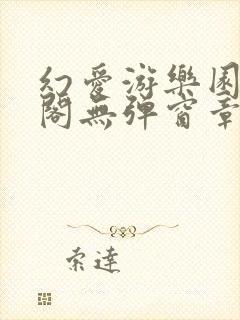 幻愛游樂園
閣無彈窗章
索達